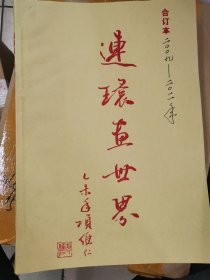 合订本
二〇〇九—二〇一一年
連環畫世界
乙未年项維仁